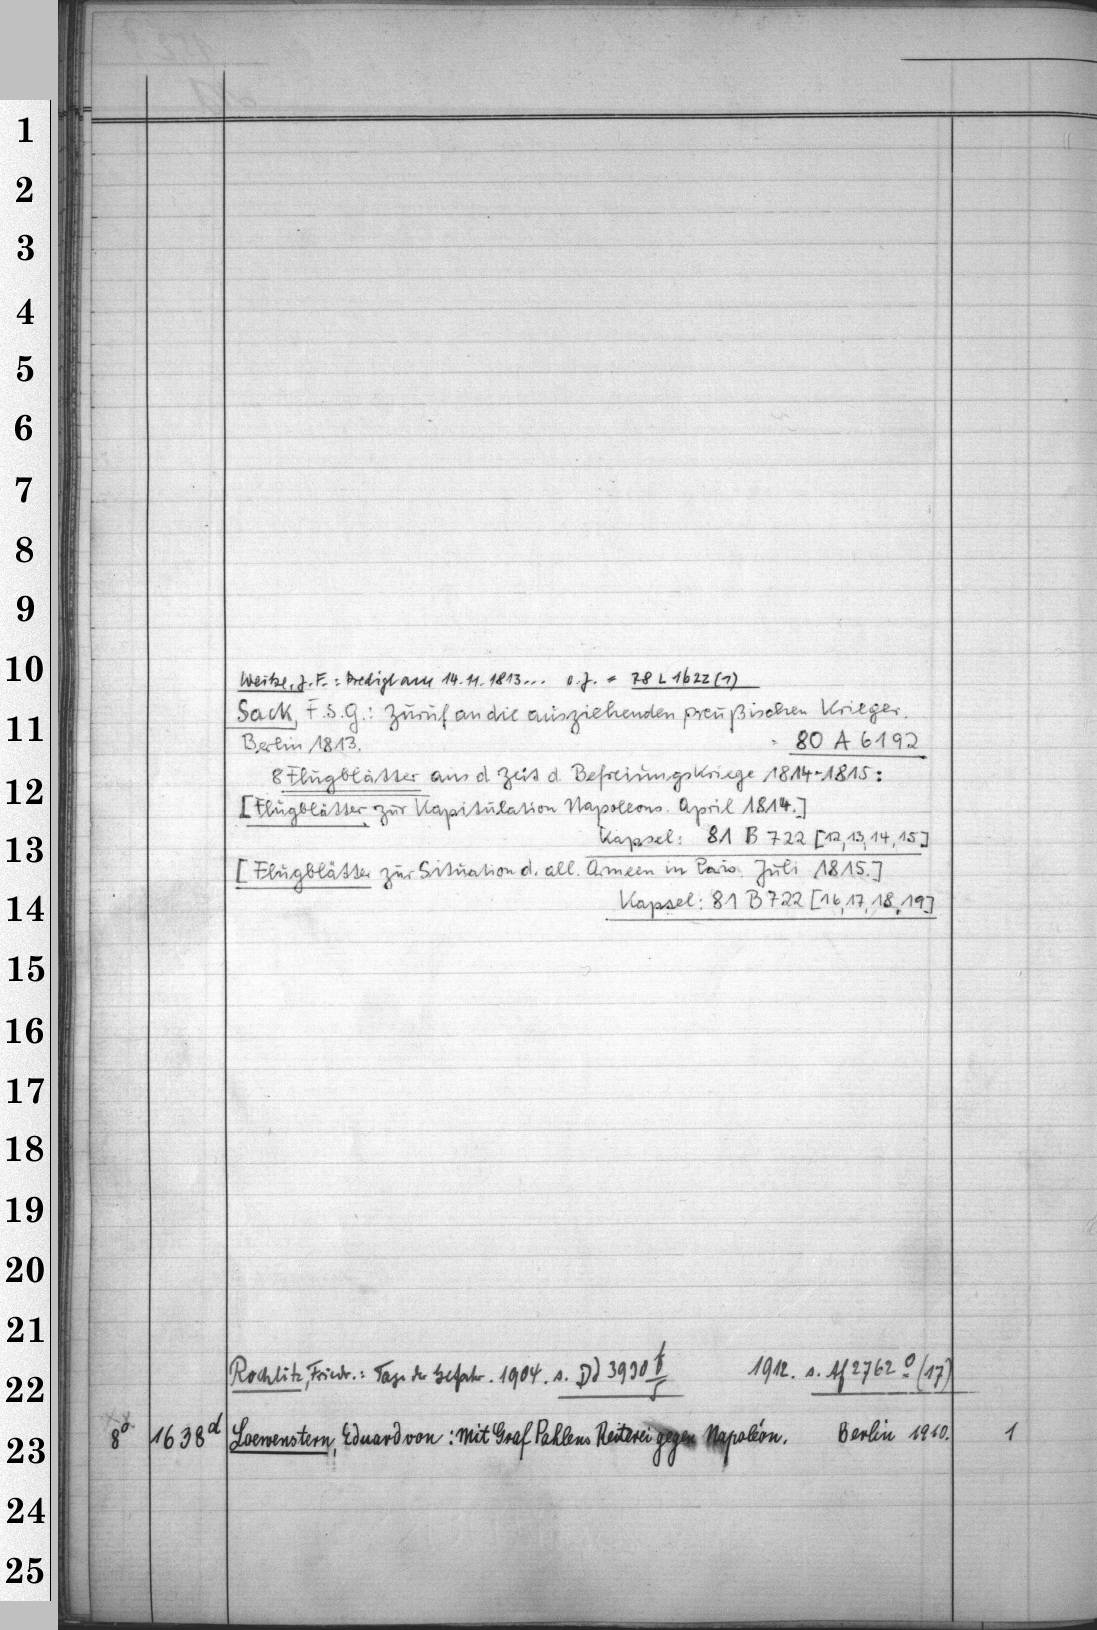 1
2
3
4
5
6
7
8
9
10
J. F.: Predigt am 14.11.1813... o.J. = 78 L 1622 (1)
11
Sack, F.S.G.: Zuruf an die ausziehenden preußischen Krieger.
Berlin 1813. 80 A 6192
8 Flugblätter aus d Zeit d. Befreiungskriege 1814-1815:
12
[Flugblätter zur Kapitulation Napoleons. April 1814.]
Kapsel: 81 B 722 [12,13,14,15]
13
[Flugblätter zur Situation d. all. Armeen in Paris. Juli 1815.]
Kapsel: 81 B 722 [16,17,18,19]
14
15
16
17
18
19
20
21
22
Rochlitz, Friedr.: Tage der Gefahr. 1904. s. Dd 3930 1912. s. Af 2762 o (17)
23
8o 1638d Loewenstern, Eduard von: Mit Graf Pahlens Reiterei gegen Napoléon. Berlin 1910. 1
24
25